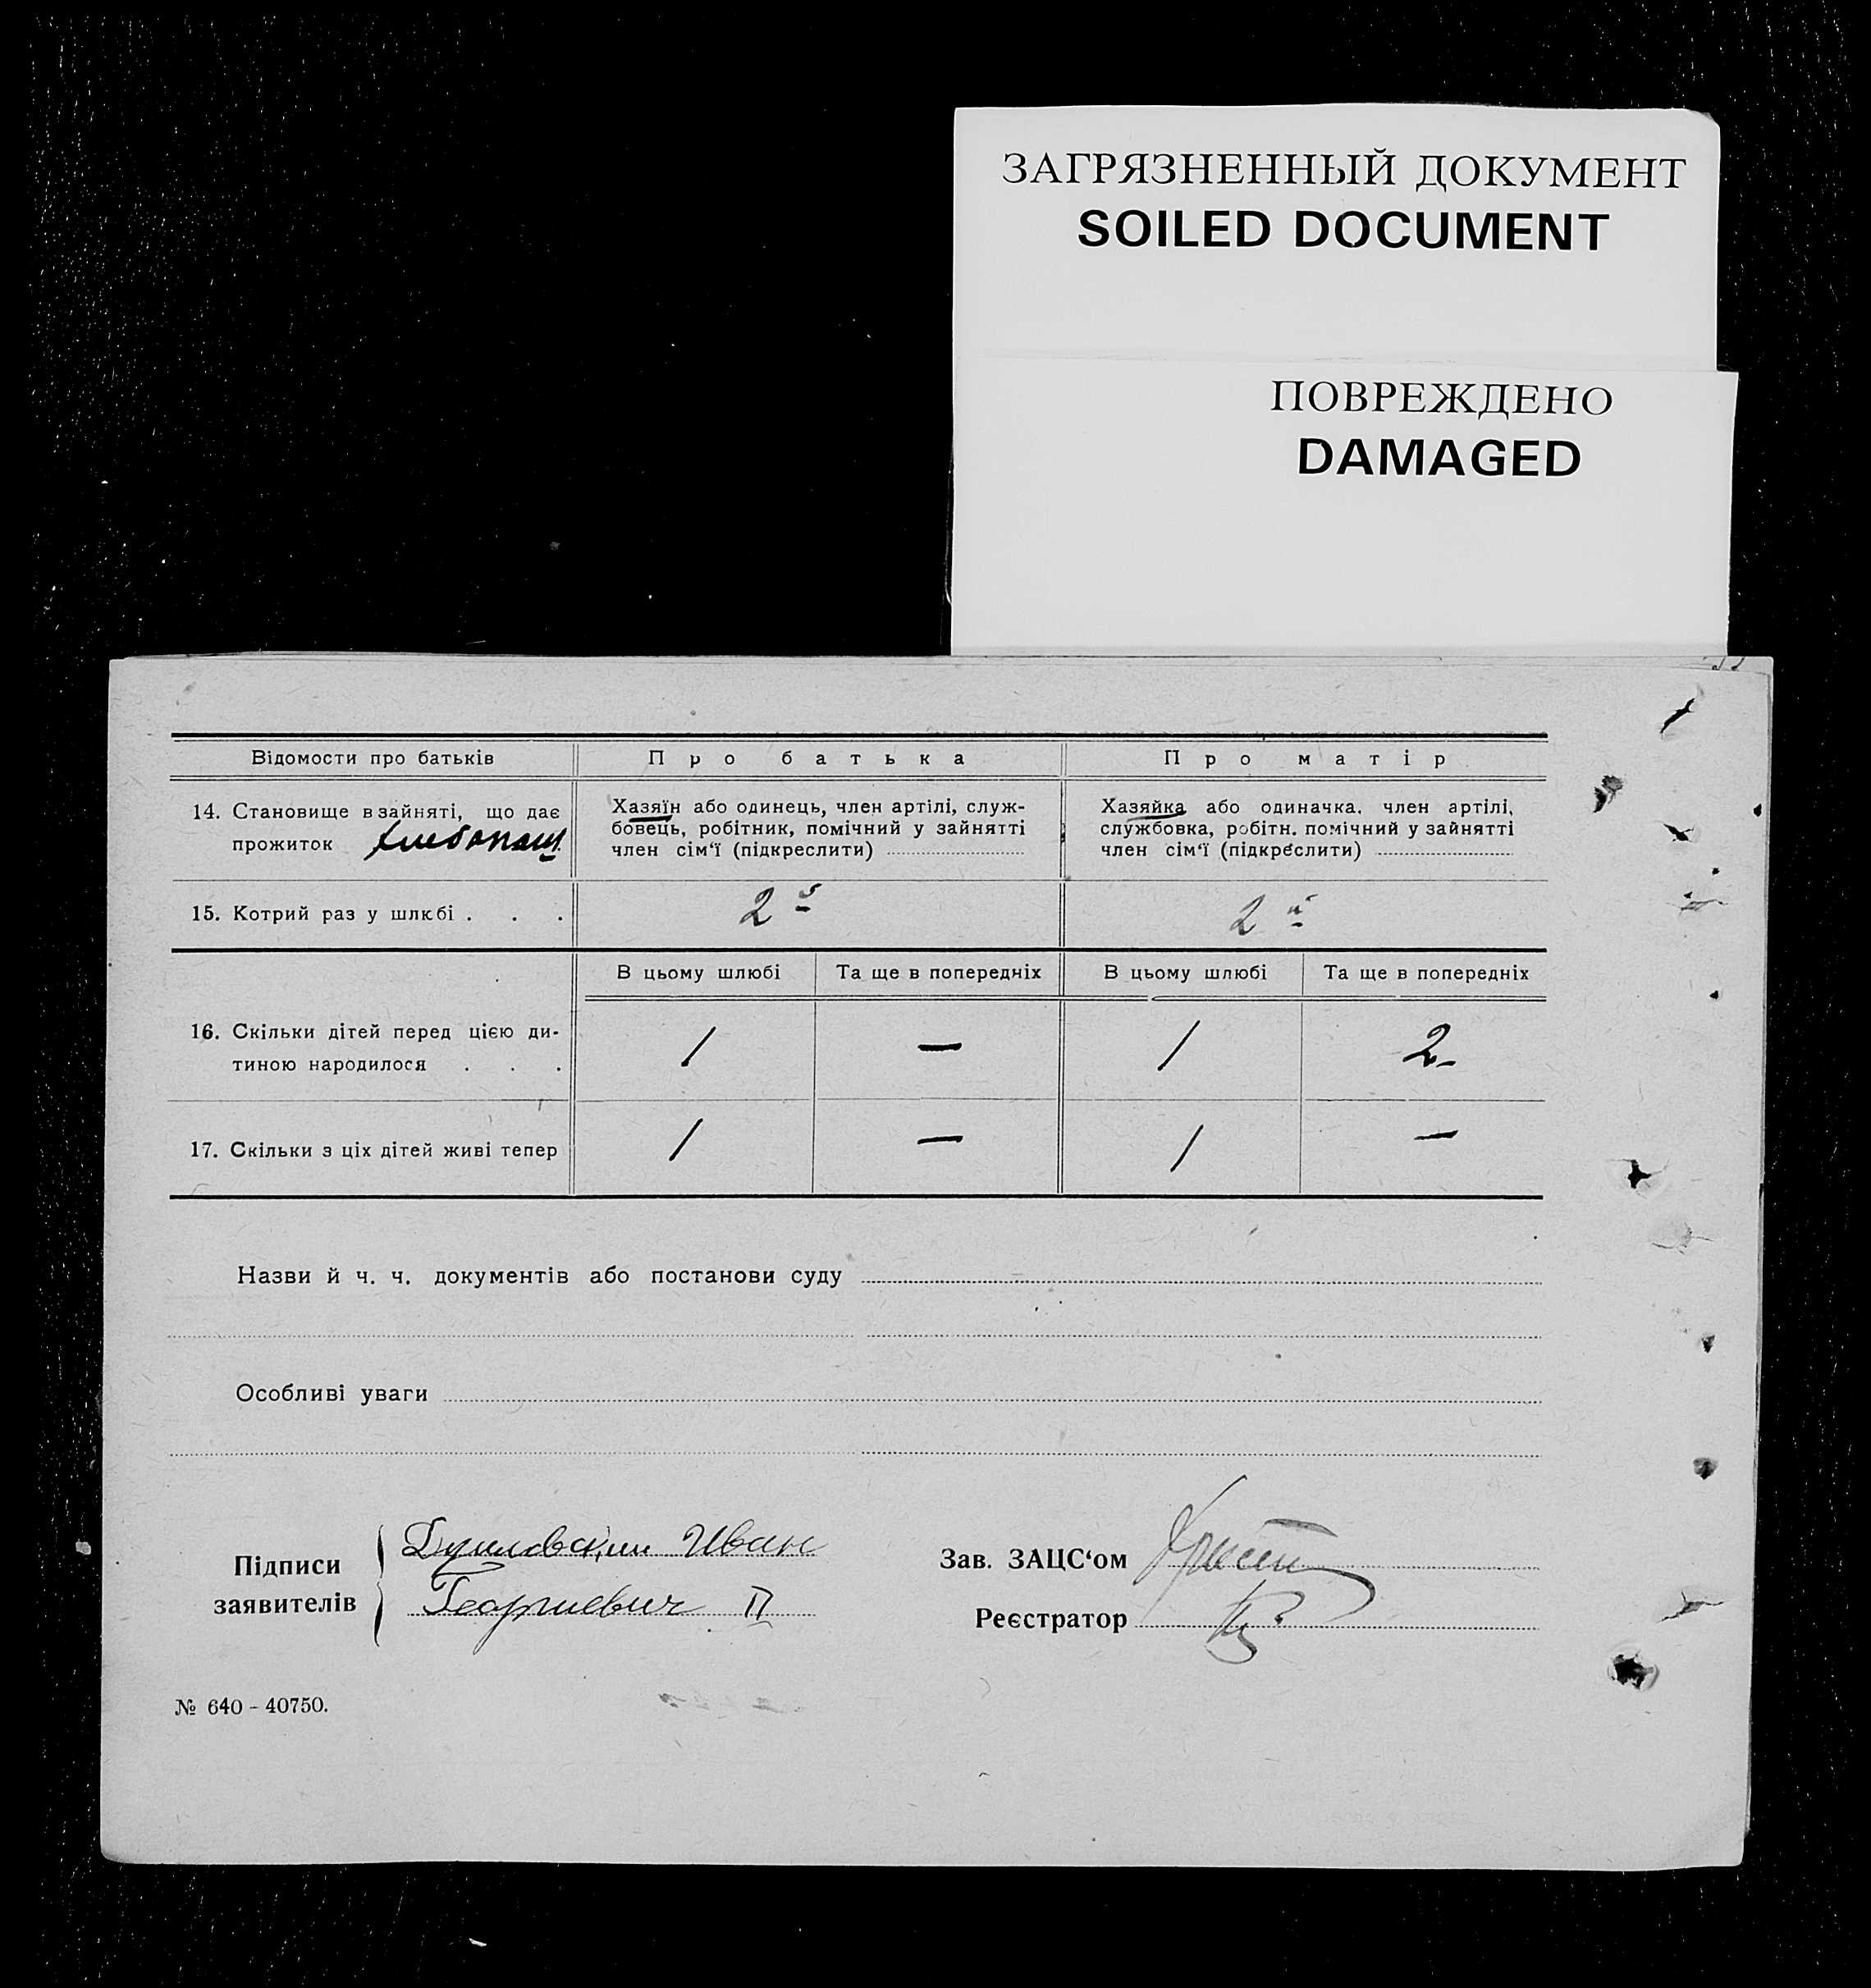 ЗАГРЯЗНЕННЫЙ ДОКУМЕНТ
SOILED DOCUMENT
ПОВРЕЖДЕНО
DAMAGED
Відомости про батьків
Про батька
Про матір
14. Становище в зайняті, що дає
прожиток хлебопаш.
Хазяїн або одинець, член артілі, служ-
бовець, робітник, помічний у зайнятті
член сім‘ї (підкреслити)
Хазяйка або одиначка, член артілі,
службовка, робітн. помічний у зайнятті
член сім‘ї (підкреслити)
15. Котрий раз у шлюбі . . .
2й
2й
В цьому шлюбі
Та ще в попередніх
В цьому шлюбі
Та ще в попередніх
16. Скільки дітей перед цією ди-
тиною народилося . . .
1
—
1
2
17. Скільки з ціх дітей живі тепер
1
—
1
—
Назви й ч. ч. документів або постанови суду
Особливі уваги
Підписи
заявителів
Иван
Георгиевич II
Зав. ЗАЦС‘ом
Реєстратор
№ 640 - 40750.